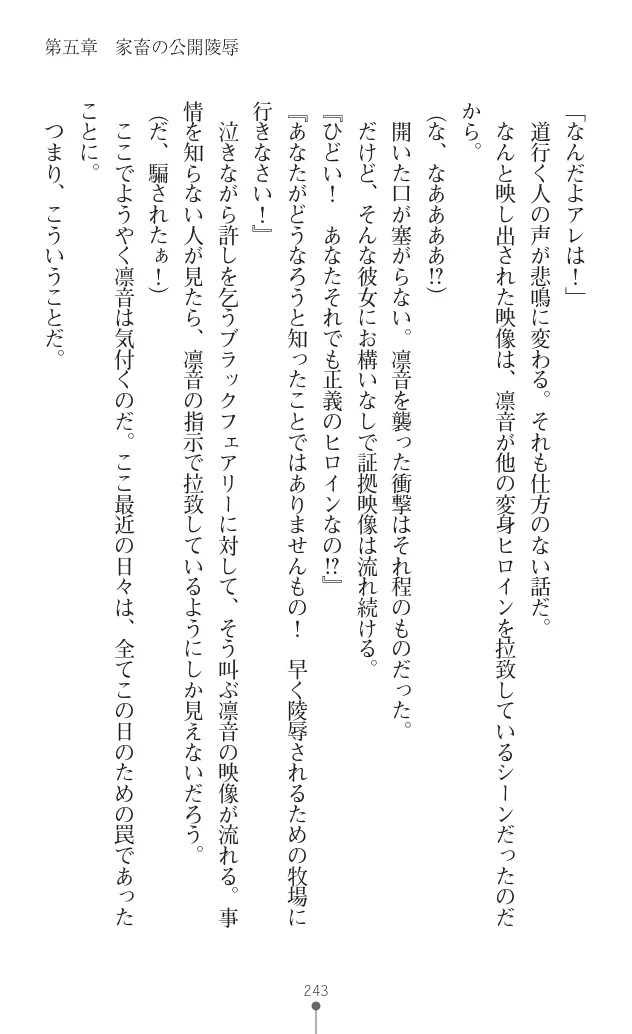 第五章　家畜の公開陵辱
「なんだよアレは！」
　道行く人の声が悲鳴に変わる。それも仕方のない話だ。
　なんと映し出された映像は、凛音が他の変身ヒロインを拉致しているシーンだったのだ
から。
（な、なああああ!?）
　開いた口が塞がらない。凛音を襲った衝撃はそれ程のものだった。
　だけど、そんな彼女にお構いなしで証拠映像は流れ続ける。
『ひどい！　あなたそれでも正義のヒロインなの!?』
『あなたがどうなろうと知ったことではありませんもの！　早く陵辱されるための牧場に
行きなさい！』
　泣きながら許しを乞うブラックフェアリーに対して、そう叫ぶ凛音の映像が流れる。事
情を知らない人が見たら、凛音の指示で拉致しているようにしか見えないだろう。
（だ、騙されたぁ！）
　ここでようやく凛音は気付くのだ。ここ最近の日々は、全てこの日のための罠であった
ことに。
　つまり、こういうことだ。
243